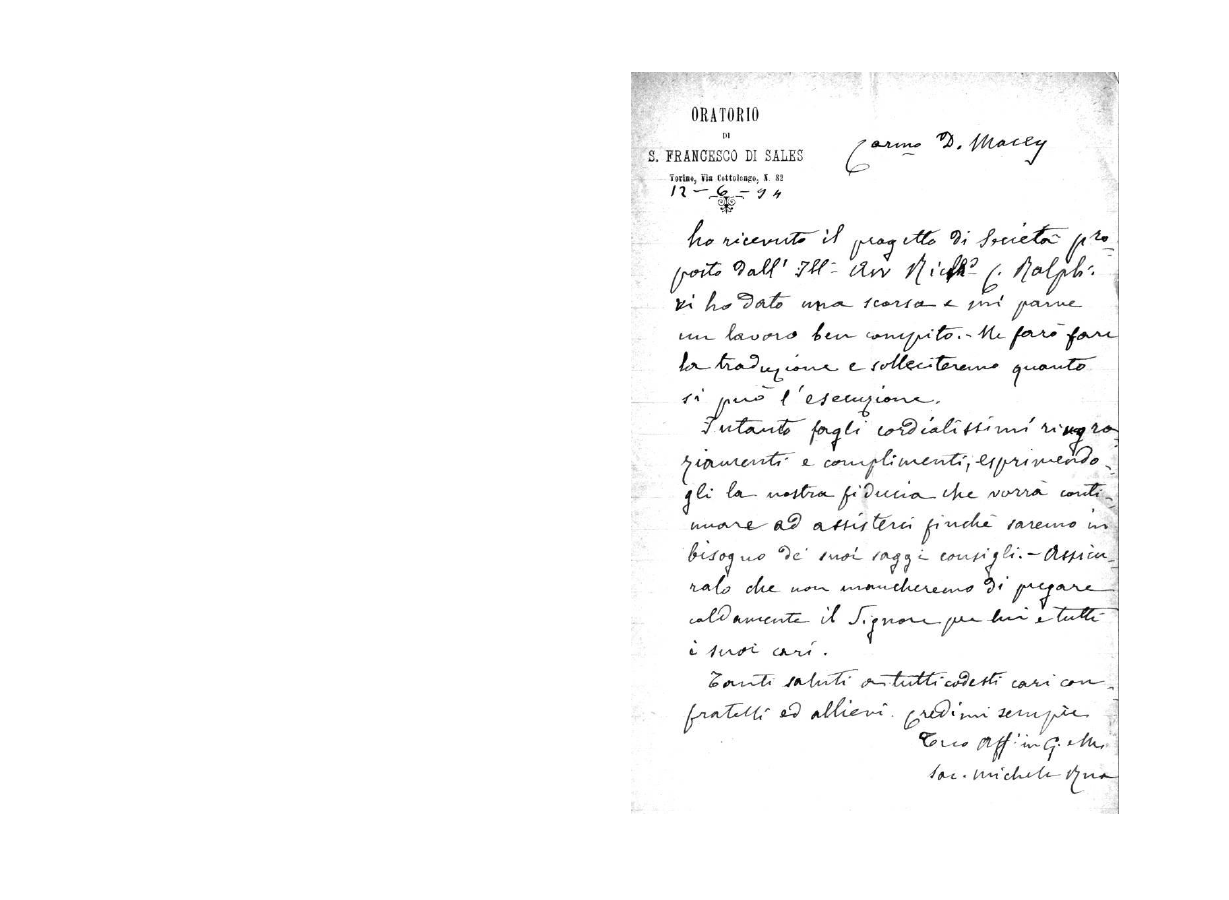 ORATORIO
DI
S. FRANCESCO DI SALES
Torino, Via Cottolengo, N. 32
12-6-94
Carmo D. Macey
ho ricevuto il progetto di Società pro-
posto dall' Ill- Avv C. Ralph.
vi ho dato una scorsa e mi parve
un lavoro ben compito.- Ne farò fare
la traduzione e solleciteremo quanto
si può l'esecuzione.
Intanto fagli cordialissimi ringra-
ziamenti e complimenti, esprimendo-
gli la nostra fiducia che vorrà conti-
nuare ad assisterci finchè saremo in
bisogno de' suoi saggi consigli.- Assicu-
ralo che non mancheremo di pregare
caldamente il Signore per lui e tutti
i suoi cari.
Tanti saluti a tutti codesti cari con-
fratelli ed allievi. Credimi sempre
Tuo Aff. in G. e M.
Sac. Michele Rua